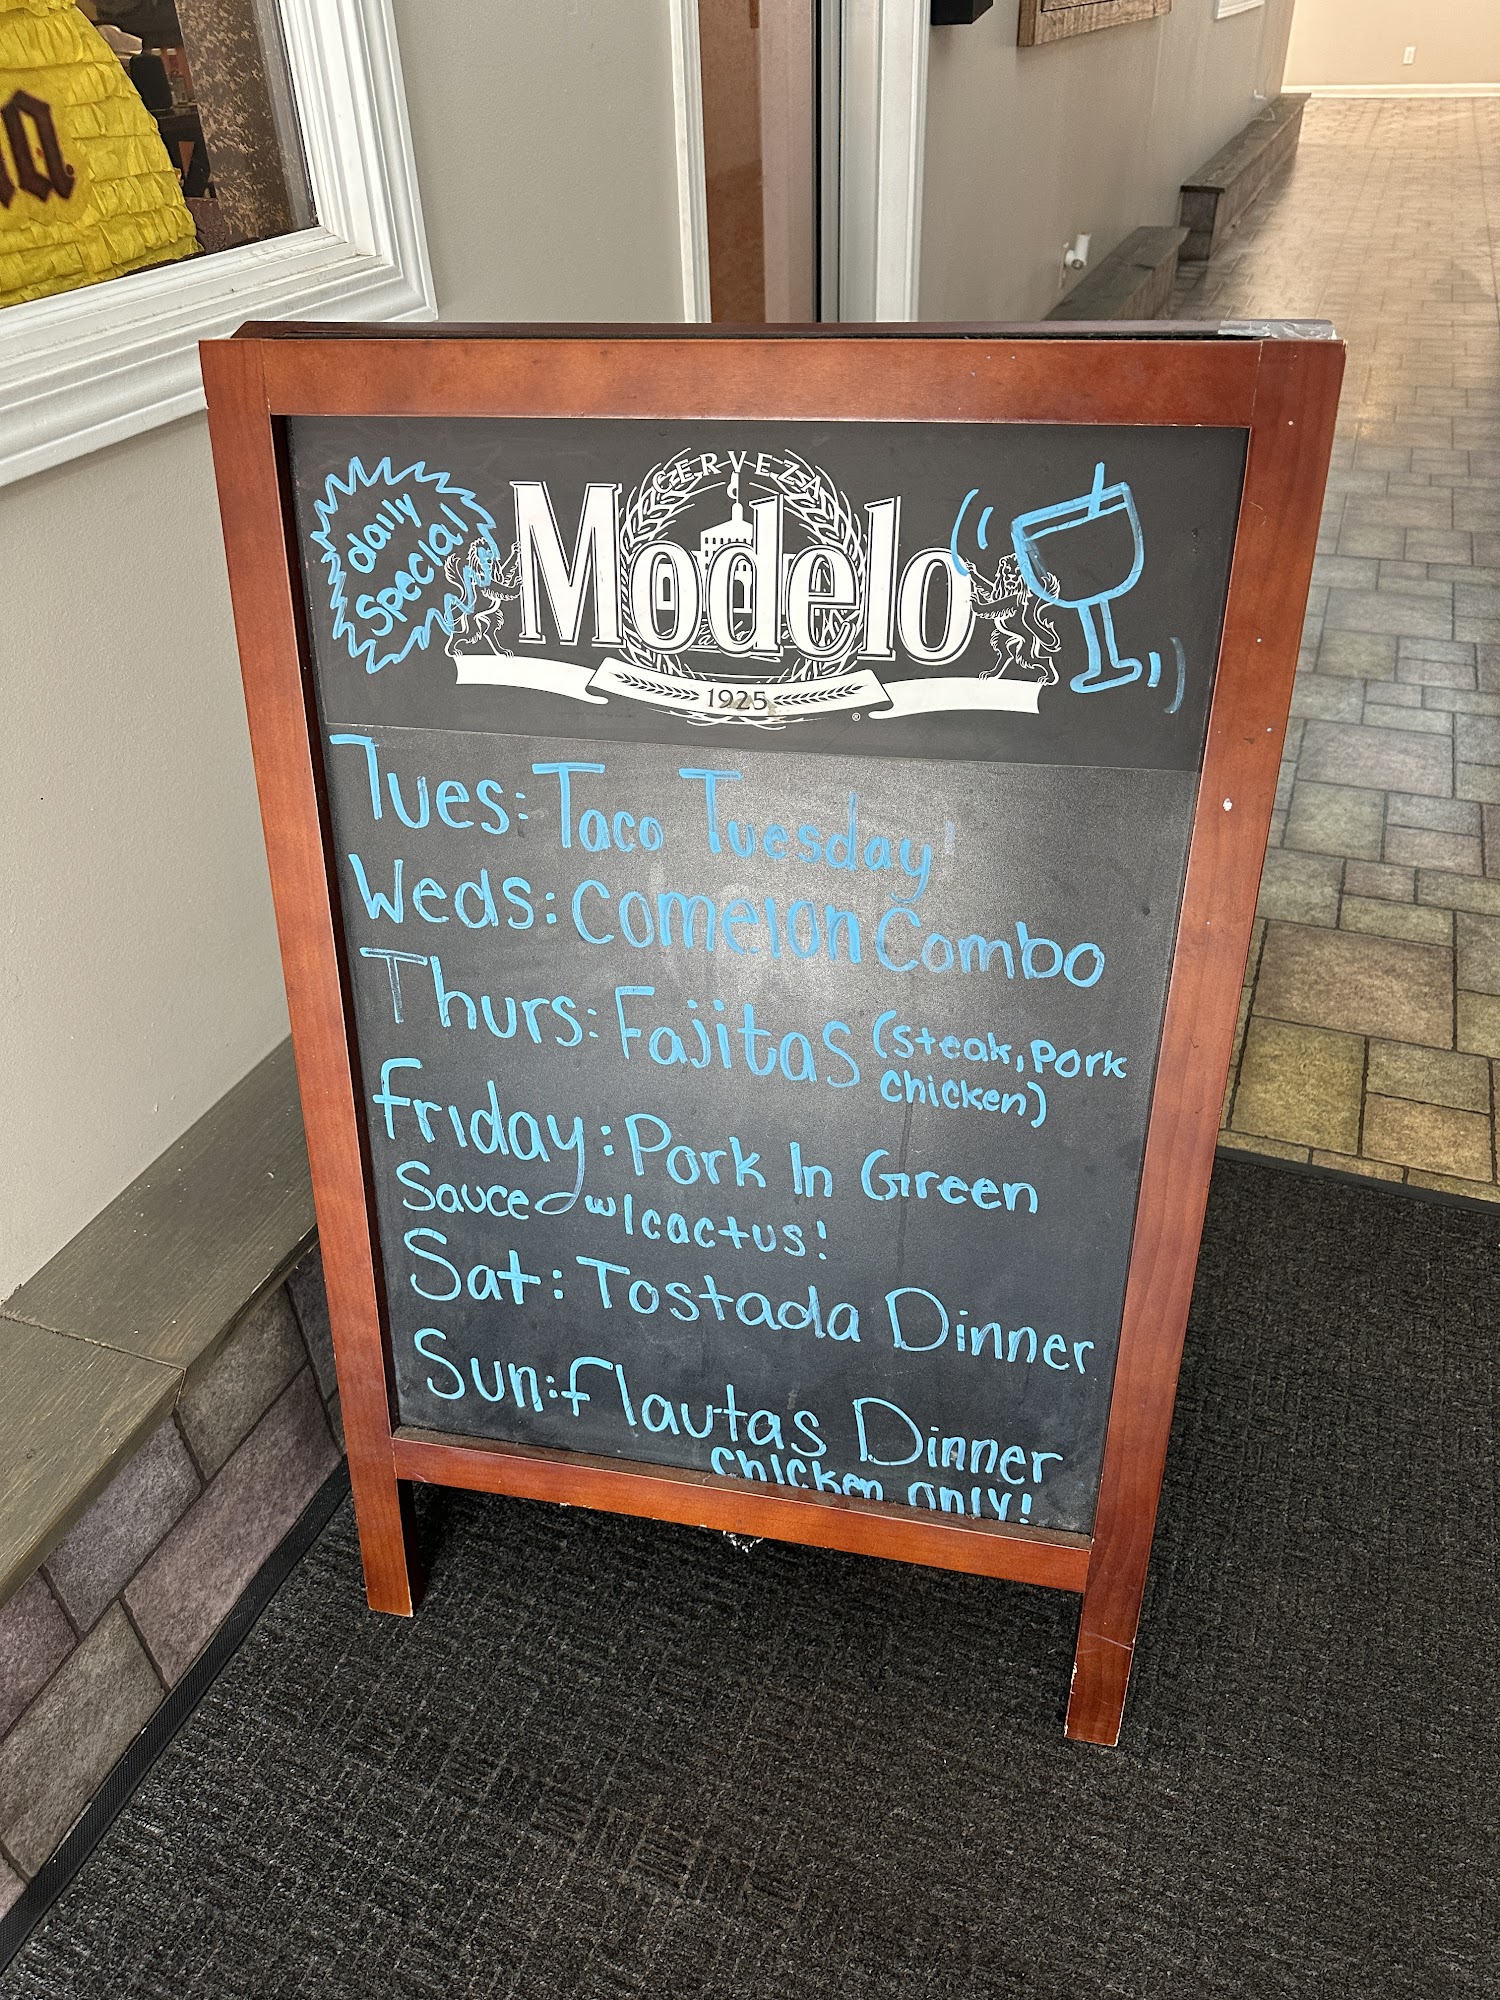 daily
special
CERVEZA
Modelo
1925
Tues: Taco Tuesday
Weds: Comelon Combo
Thurs: Fajitas (steak, pork
chicken)
friday: Pork In Green
Sauce w/cactus!
Sat: Tostada Dinner
Sun: flautas Dinner
chicken only!